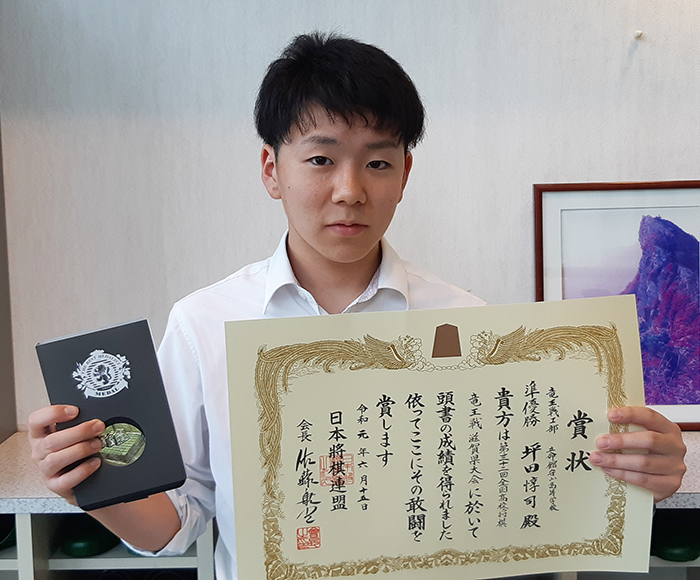 MEDAL
賞状
竜王戦
立命館守山高等学校
準優勝 坪田惇司 殿
貴方は第三十二回全国高校将棋
竜王戦滋賀県大会に於いて
頭書の成績を得られました
依ってここにその敢闘を
賞します
令和元年六月十五日
日本将棋連盟
会長 佐藤康光